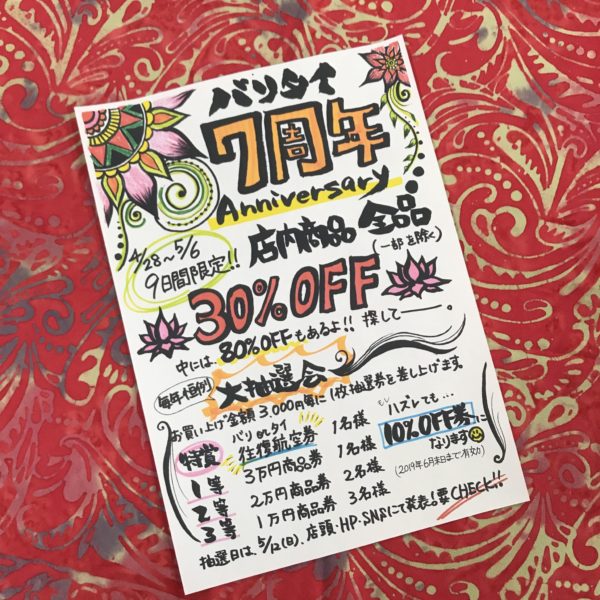 バリタイ
7周年
Anniversary
4/28〜5/6
9日間限定!!
店内商品 全品
(一部を除く)
30%OFF
中には、80%OFFもあるよ!! 探してーー。
毎年恒例
大抽選会
お買い上げ金額 3,000円毎に1枚抽選券を差し上げます。
特賞 バリorタイ 往復航空券 1名様
1等 3万円商品券 1名様
2等 2万円商品券 2名様
3等 1万円商品券 3名様
もしハズレても…
10%OFF券に
なります
(2019年6月末日まで有効)
抽選日は、5/12(日)、店頭・HP・SNSにて発表!要CHECK!!